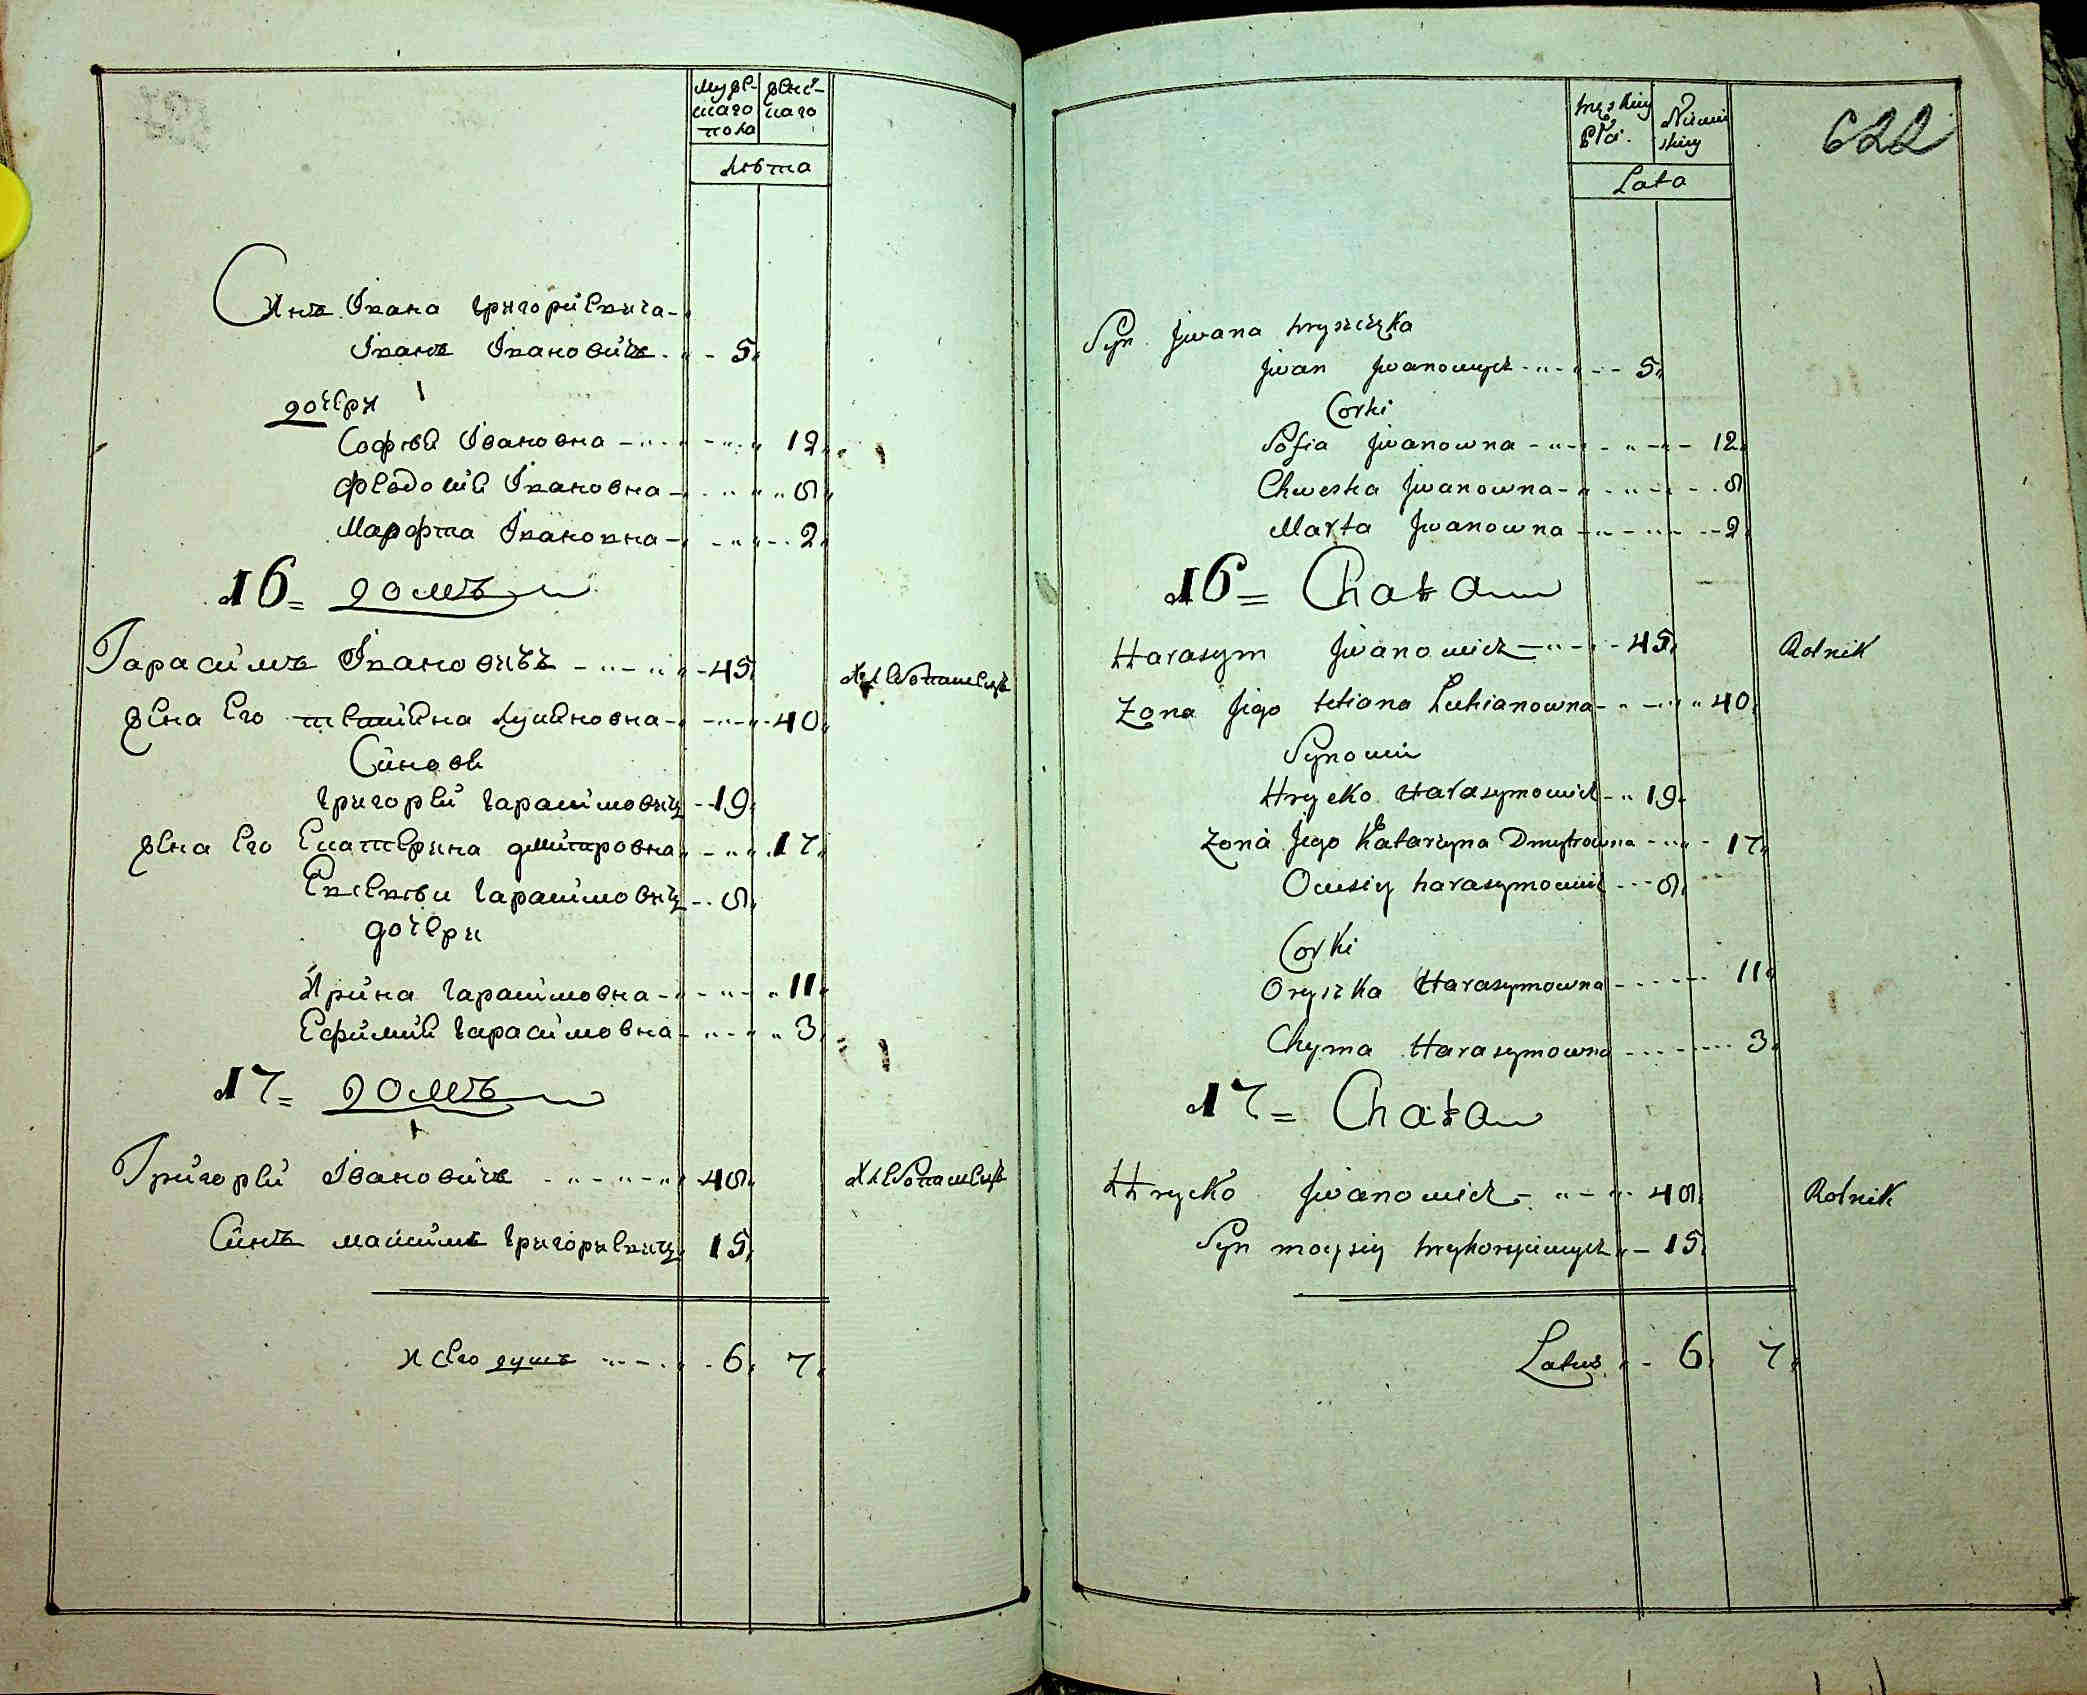 мужескаго пола
женскаго
лѣта
Синъ Івана григориевича
Іванъ Івановичъ 5
дочери
Софія Івановна 12
Феодосия Івановна 8
Марфта Івановна 2
16 = домъ
Гарасимъ Івановичъ 45 хлебопашецъ
жена его татияна лукяновна 40
Синове
григорей гарасимовичъ 19
жена его Екатерина дмитровна 17
Евсевѣи гарасимовичъ 8
дочери
Ирина гарасимовна 11
Ефимия гарасимовна 3
17 = домъ
Григорей Івановичъ 48 хлебопашецъ
Синъ григориевичъ 15
всего душъ 6 7
męskiey płci
Niewieskiey
622
Lata
Syn Jwana hryszczka
Jwan Jwanowycz 5
Corki
Sofia Jwanowna 12
Chweska Jwanowna 8
Marta Jwanowna 2
16 = Chata
Harasym Jwanowicz 45 Rolnik
Zona Jego tetiana Lukianowna 40
Synowie
Hrycko Harasymowicz 19
Zona Jego Katarzyna Dmytrowna 17
Owsiy harasymowicz 8
Corki
Oryszka Harasymowna 11
Chyma Harasymowna 3
17 = Chata
Hrycko Jwanowicz 48 Rolnik
Syn moysiy hryhoryiewycz 15
Latus 6 7